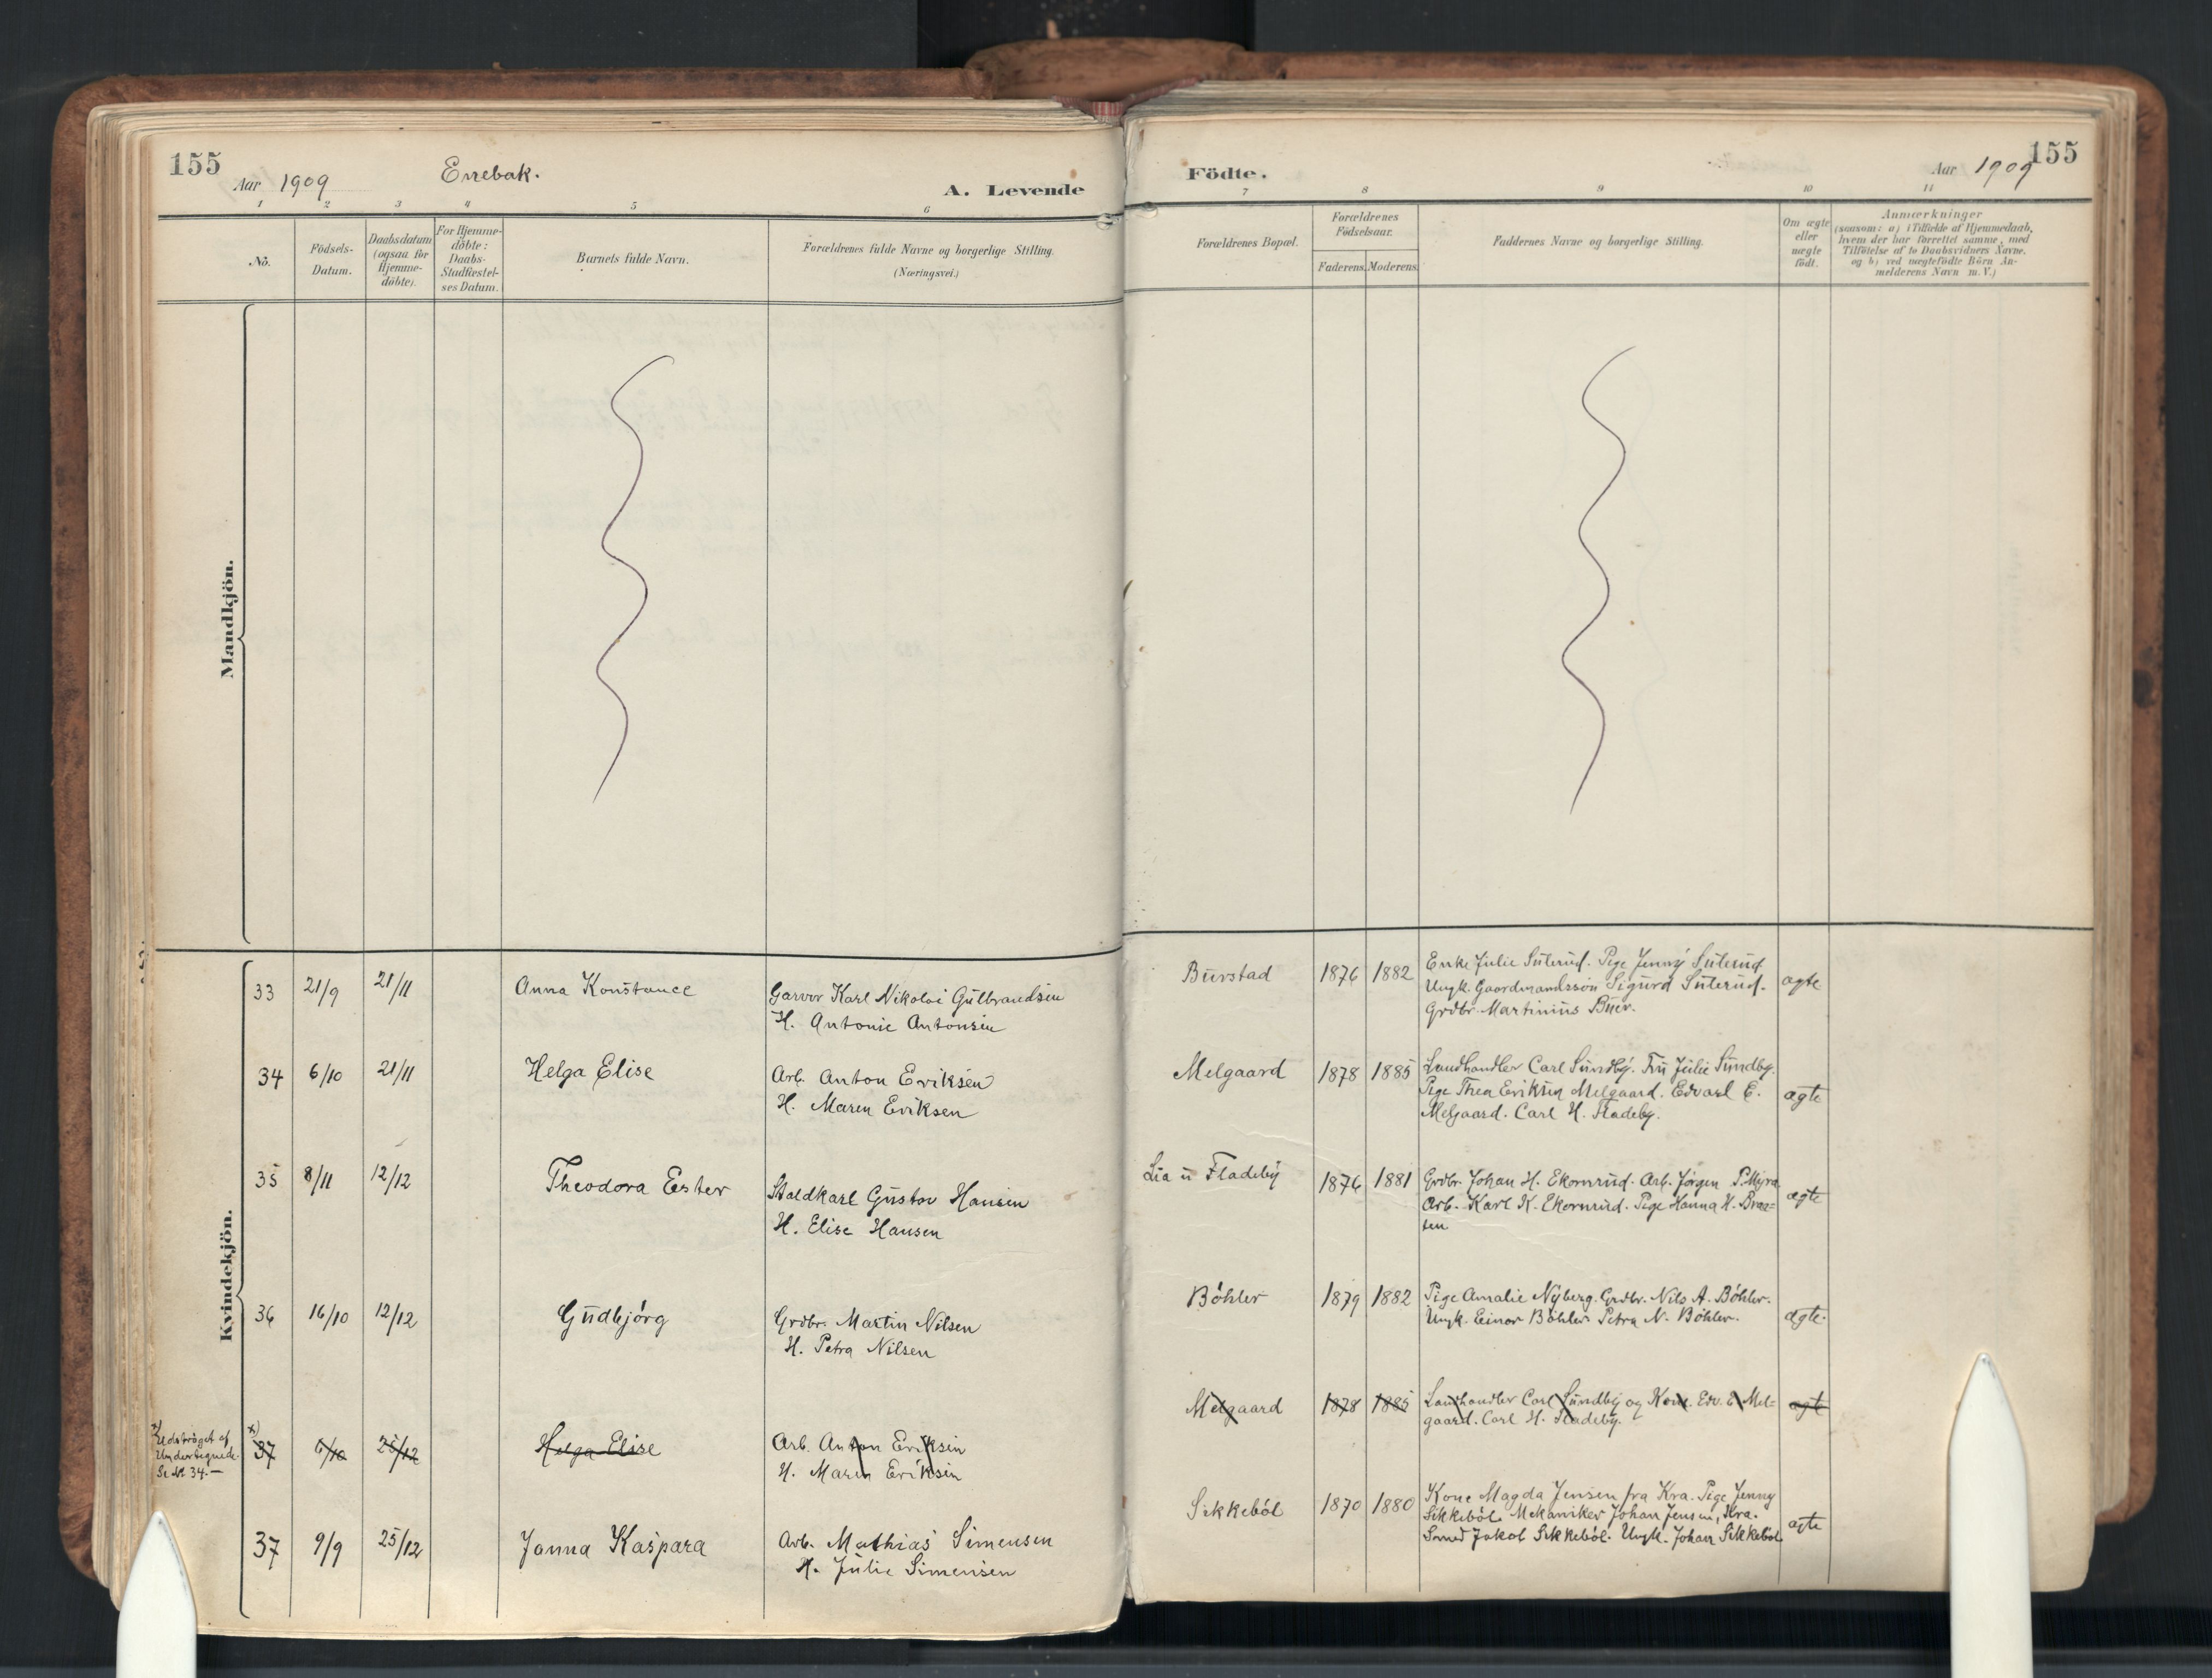 155
Aar 1909
Enebak.
A. Levende
1 2 3 4 5 6
No.
Födsels-
Datum.
Daabsdatum
(ogsaa for
Hjemme-
döbte).
For Hjemme-
döbte:
Daabs-
Stadfæstel-
ses Datum.
Barnets fulde Navn.
Forældrenes fulde Navne og borgerlige Stilling.
(Næringsvei.)
Mandkjön.
Kvindekjön.
33 21/9 21/11 Anna Konstance
Garver Karl Nikolai Gulbrandsen
H. Antonie Antonsen
34 6/10 21/11 Helga Elise
Arb. Anton Eriksen
H. Maren Eriksen
35 8/11 12/12 Theodora Ester
Staldkarl Gustav Hansen
H. Elise Hansen
36 16/10 12/12 Gudbjórg
Grdbr. Martin Nilsen
H. Petra Nilsen
x) Udströget af
Undertegnede.
Se No 34.—
x)
37 6/10 25/12 Helga Elise
Arb. Anton Eriksen
H. Maren Eriksen
37 9/9 25/12 Janna Kaspara
Arb. Mathias Simensen
H. Julie Simensen
Födte.
Aar 1909
155
7 8 9 10 11
Forældrenes Bopæl.
Forældrenes
Födselsaar.
Faderens. Moderens.
Faddernes Navne og borgerlige Stilling.
Om ægte
eller
uægte
födt.
Anmærkninger
(saasom: a) i Tilfælde af Hjemmedaab,
hvem der har forrettet samme, med
Tilföielse af to Daabsvidners Navne.
og b) ved uægtefödte Börn An-
melderens Navn m. V.)
Burstad 1876 1882
Enke Julie Suterud. Pige Jenny Suterud
Ungk. Gaardmandssön Sigurd Suterud.
Grdbr. Martinius Buer.
ægte
Melgaard 1878 1885
Landhandler Carl Sundby. Fru Julie Sundby.
Pige Thea Eriksen Melgaard. Edvard E.
Melgaard. Carl H. Fladeby.
ægte
Lia u Fladeby 1876 1881
Grdbr. Johan H. Ekornrud. Arb. Jørgen P. Myra
Arb. Karl K. Ekornrud. Pige Hanna H. Braa-
ten
ægte
Böhler 1879 1882
Pige Amalie Nyberg. Grdbr. Nils A. Böhler.
Ungk. Einar Böhler Petra N. Böhler.
ægte.
Melgaard 1878 1885
Landhandler Carl Sundby og Kone. Edv. E. Mel-
gaard. Carl H. Fladeby.
ægte
Sikkeböl 1870 1880
Kone Magda Jensen fra Kra. Pige Jenny
Sikkeböl. Mekaniker Johan Jensen, Kra.
Smed Jakob Sikkeböl. Ungk. Johan Sikkeböl
ægte